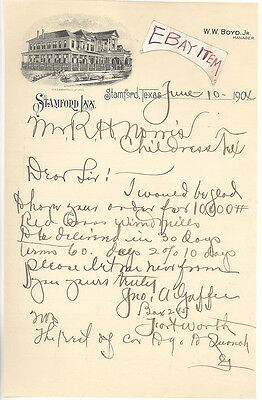 W. W. BOYD, JR.
MANAGER
EBAY ITEM
STAMFORD INN.
Stamford, Texas June 10 - 1904
Mr R. H. Norris
Childress Tex
Dear Sir! -
I would be glad
to have your order for 10,000#
Red Cross Windmills
to be delivered in 30 days
terms 60. days 2% 10 days
please let me hear from
you yours truly
Jno. A Gaffer
Box 2
Fort Worth
The rest of car to go to Quanah